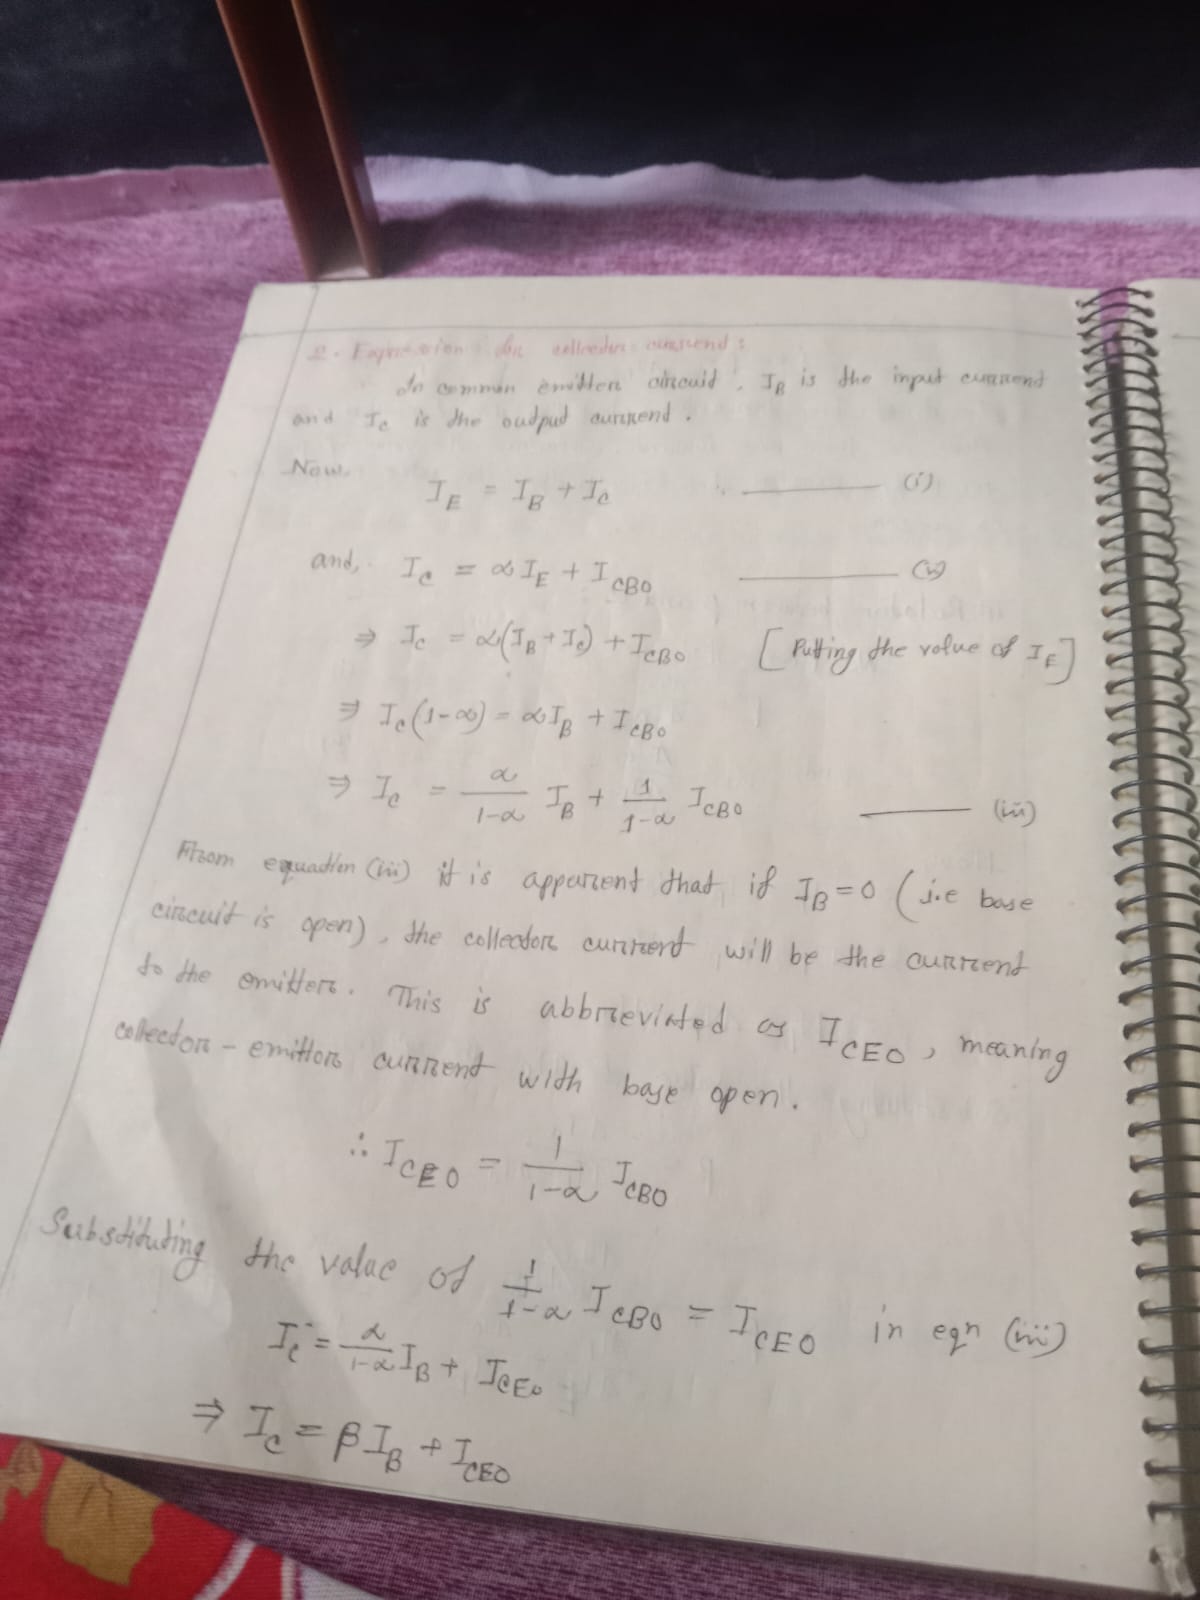 2. Expression for collector current:
In common emitter circuit, I_B is the input current
and I_C is the output current.
Now.
I_E = I_B + I_C ——— (i)
and, I_C = αI_E + I_CBO ——— (ii)
⇒ I_C = α(I_B + I_C) + I_CBO [Putting the value of I_E]
⇒ I_C(1-α) = αI_B + I_CBO
⇒ I_C = α/(1-α) I_B + 1/(1-α) I_CBO ——— (iii)
From equation (iii) it is apparent that if I_B = 0 (i.e base
circuit is open), the collector current will be the current
to the emitter. This is abbreviated as I_CEO, meaning
collector-emitter current with base open.
∴ I_CEO = 1/(1-α) I_CBO
Substituting the value of 1/(1-α) I_CBO = I_CEO in eqn (iii)
I_C = α/(1-α) I_B + I_CEO
⇒ I_C = βI_B + I_CEO